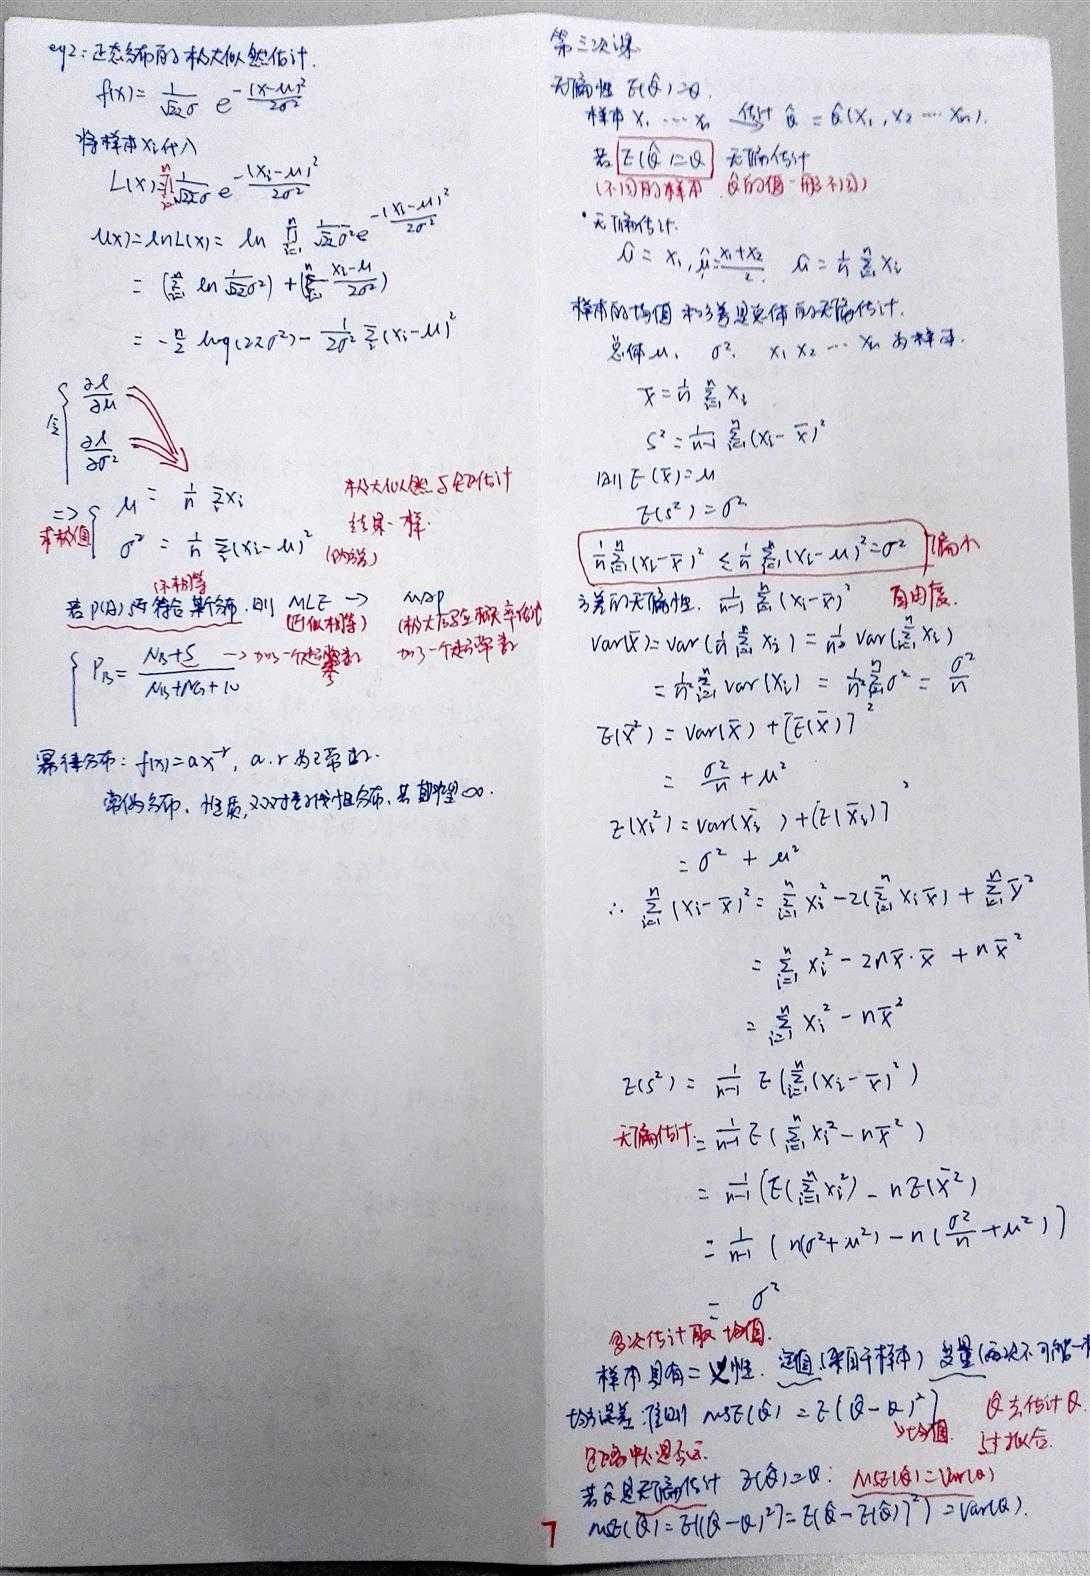 eg2: 正态分布的极大似然估计.
f(x) = 1/√2πσ e^{-(x-μ)²/2σ²}
将样本xi代入
L(x) = ∏ 1/√2πσ e^{-(xi-μ)²/2σ²}
l(x) = lnL(x) = ln ∏_{i=1}^{n} 1/√2πσ² e^{-(xi-μ)²/2σ²}
= (Σ_{i=1}^{n} ln 1/√2πσ²) + (Σ - xi-μ/2σ²)
= -n/2 log(2πσ²) - 1/2σ² Σ_i (xi-μ)²
令 { ∂l/∂μ
∂l/∂σ²
=> { μ = 1/n Σ_i xi
求极值 σ² = 1/n Σ_i (xi-μ)²
极大似然与矩估计
结果一样.
(不相等)
若P(θ)符合某分布, 则 MLE → MAP
(近似相等)
加了一个超参数
{ P_B = N_B+5 / N_B+N_G+10 → 加了一个超参数
幂律分布: f(x) = ax^{-r}, a.r为正常数.
第三次课
无偏性 E(θ̂)=θ.
样本 X1 ⋯ Xn 估计→ θ̂ = θ̂(X1, X2 ⋯ Xn).
若 E(θ̂)=θ 无偏估计
(不同的样本, θ̂的值一般不同)
• 无偏估计.
û = x1, μ̂ = x1+x2/2, û = 1/n Σ_{i=1}^{n} xi
样本的均值和方差是总体的无偏估计.
总体 μ, σ². x1 x2 ⋯ xn 为样本.
x̄ = 1/n Σ_{i=1}^{n} xi
S² = 1/n-1 Σ_{i=1}^{n} (xi-x̄)²
则 E(x̄)=μ
E(s²)=σ²
1/n Σ_{i=1}^{n} (xi-x̄)² ≤ 1/n Σ_{i=1}^{n} (xi-μ)² = σ² 偏小
方差的无偏性. 1/n-1 Σ_{i=1}^{n} (xi-x̄)² 自由度.
var(x̄) = var(1/n Σ_{i=1}^{n} xi) = 1/n² var(Σ_{i=1}^{n} xi)
= 1/n² Σ_{i=1}^{n} var(xi) = 1/n² Σ_{i=1}^{n} σ² = σ²/n
E(x̄²) = var(x̄) + [E(x̄)]²
= σ²/n + μ²
E(xi²) = var(xi) + [E(x̄i)]²
= σ² + μ²
∴ Σ_{i=1}^{n} (xi-x̄)² = Σ_{i=1}^{n} xi² - 2(Σ_{i=1}^{n} xi x̄) + Σ_{i=1}^{n} x̄²
= Σ_{i=1}^{n} xi² - 2nx̄·x̄ + nx̄²
= Σ_{i=1}^{n} xi² - nx̄²
E(s²) = 1/n-1 E(Σ_{i=1}^{n} (xi-x̄)²)
无偏估计 = 1/n-1 E(Σ_{i=1}^{n} xi² - nx̄²)
= 1/n-1 (E(Σ_{i=1}^{n} xi²) - nE(x̄²)
= 1/n-1 (n(σ²+μ²) - n(σ²/n + μ²))
= σ²
多次估计取均值.
样本具有二义性. 定值(来自于样本) 变量(两次不可能一样
均方误差准则 MSE(θ̂) = E[(θ̂-θ)²] θ̂去估计θ.
→均值.
若θ̂是无偏估计 E(θ̂)=θ: MSE(θ̂)=Var(θ)
MSE(θ̂) = E[(θ̂-θ)²] = E(θ̂-E(θ̂))²) = Var(θ).
7